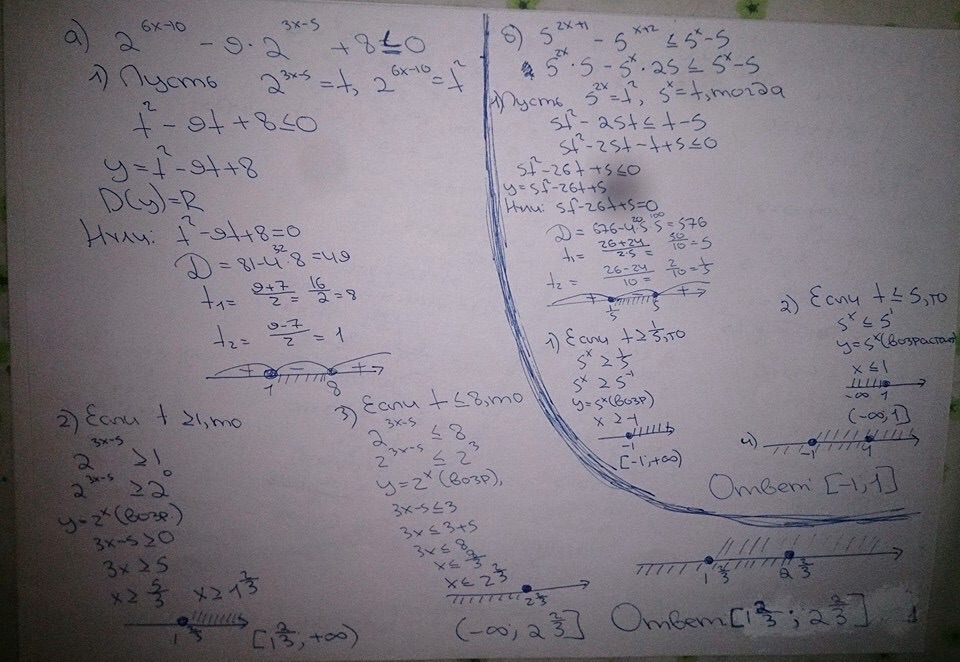 а) 2^(6x-10) - 9·2^(3x-5) + 8 ≤ 0
1) Пусть 2^(3x-5) = t, 2^(6x-10) = t²
t² - 9t + 8 ≤ 0
y = t² - 9t + 8
D(y) = R
Нули: t² - 9t + 8 = 0
D = 81 - 4·8 = 49
32
t₁ = (9+7)/2 = 16/2 = 8
t₂ = (9-7)/2 = 1
+ - +
1 8
2) Если t ≥ 1, то
2^(3x-5) ≥ 1
2^(3x-5) ≥ 2⁰
y = 2^x (возр)
3x-5 ≥ 0
3x ≥ 5
x ≥ 5/3 x ≥ 1 2/3
1 2/3 [1 2/3; +∞)
3) Если t ≤ 8, то
2^(3x-5) ≤ 8
2^(3x-5) ≤ 2³
y = 2^x (возр),
3x-5 ≤ 3
3x ≤ 3+5
3x ≤ 8
x ≤ 2 2/3
2 2/3
(-∞; 2 2/3]
1 2/3 2 2/3
Ответ: [1 2/3; 2 2/3]
б) 5^(2x+1) - 5^(x+2) ≤ 5^x - 5
5^(2x)·5 - 5^x·25 ≤ 5^x - 5
1) Пусть 5^(2x) = t², 5^x = t, тогда
5t² - 25t ≤ t - 5
5t² - 25t - t + 5 ≤ 0
5t² - 26t + 5 ≤ 0
y = 5t² - 26t + 5
Нули: 5t² - 26t + 5 = 0
D = 676 - 4·5·5 = 576
20 100
t₁ = (26+24)/(2·5) = 50/10 = 5
t₂ = (26-24)/10 = 2/10 = 1/5
+ - +
1/5 5
1) Если t ≥ 1/5, то
5^x ≥ 1/5
5^x ≥ 5^(-1)
y = 5^x (возр)
x ≥ -1
-1
[-1; +∞)
2) Если t ≤ 5, то
5^x ≤ 5¹
y = 5^x (возрастает)
x ≤ 1
-∞ 1
(-∞; 1]
4) -1 1
Ответ: [-1, 1]